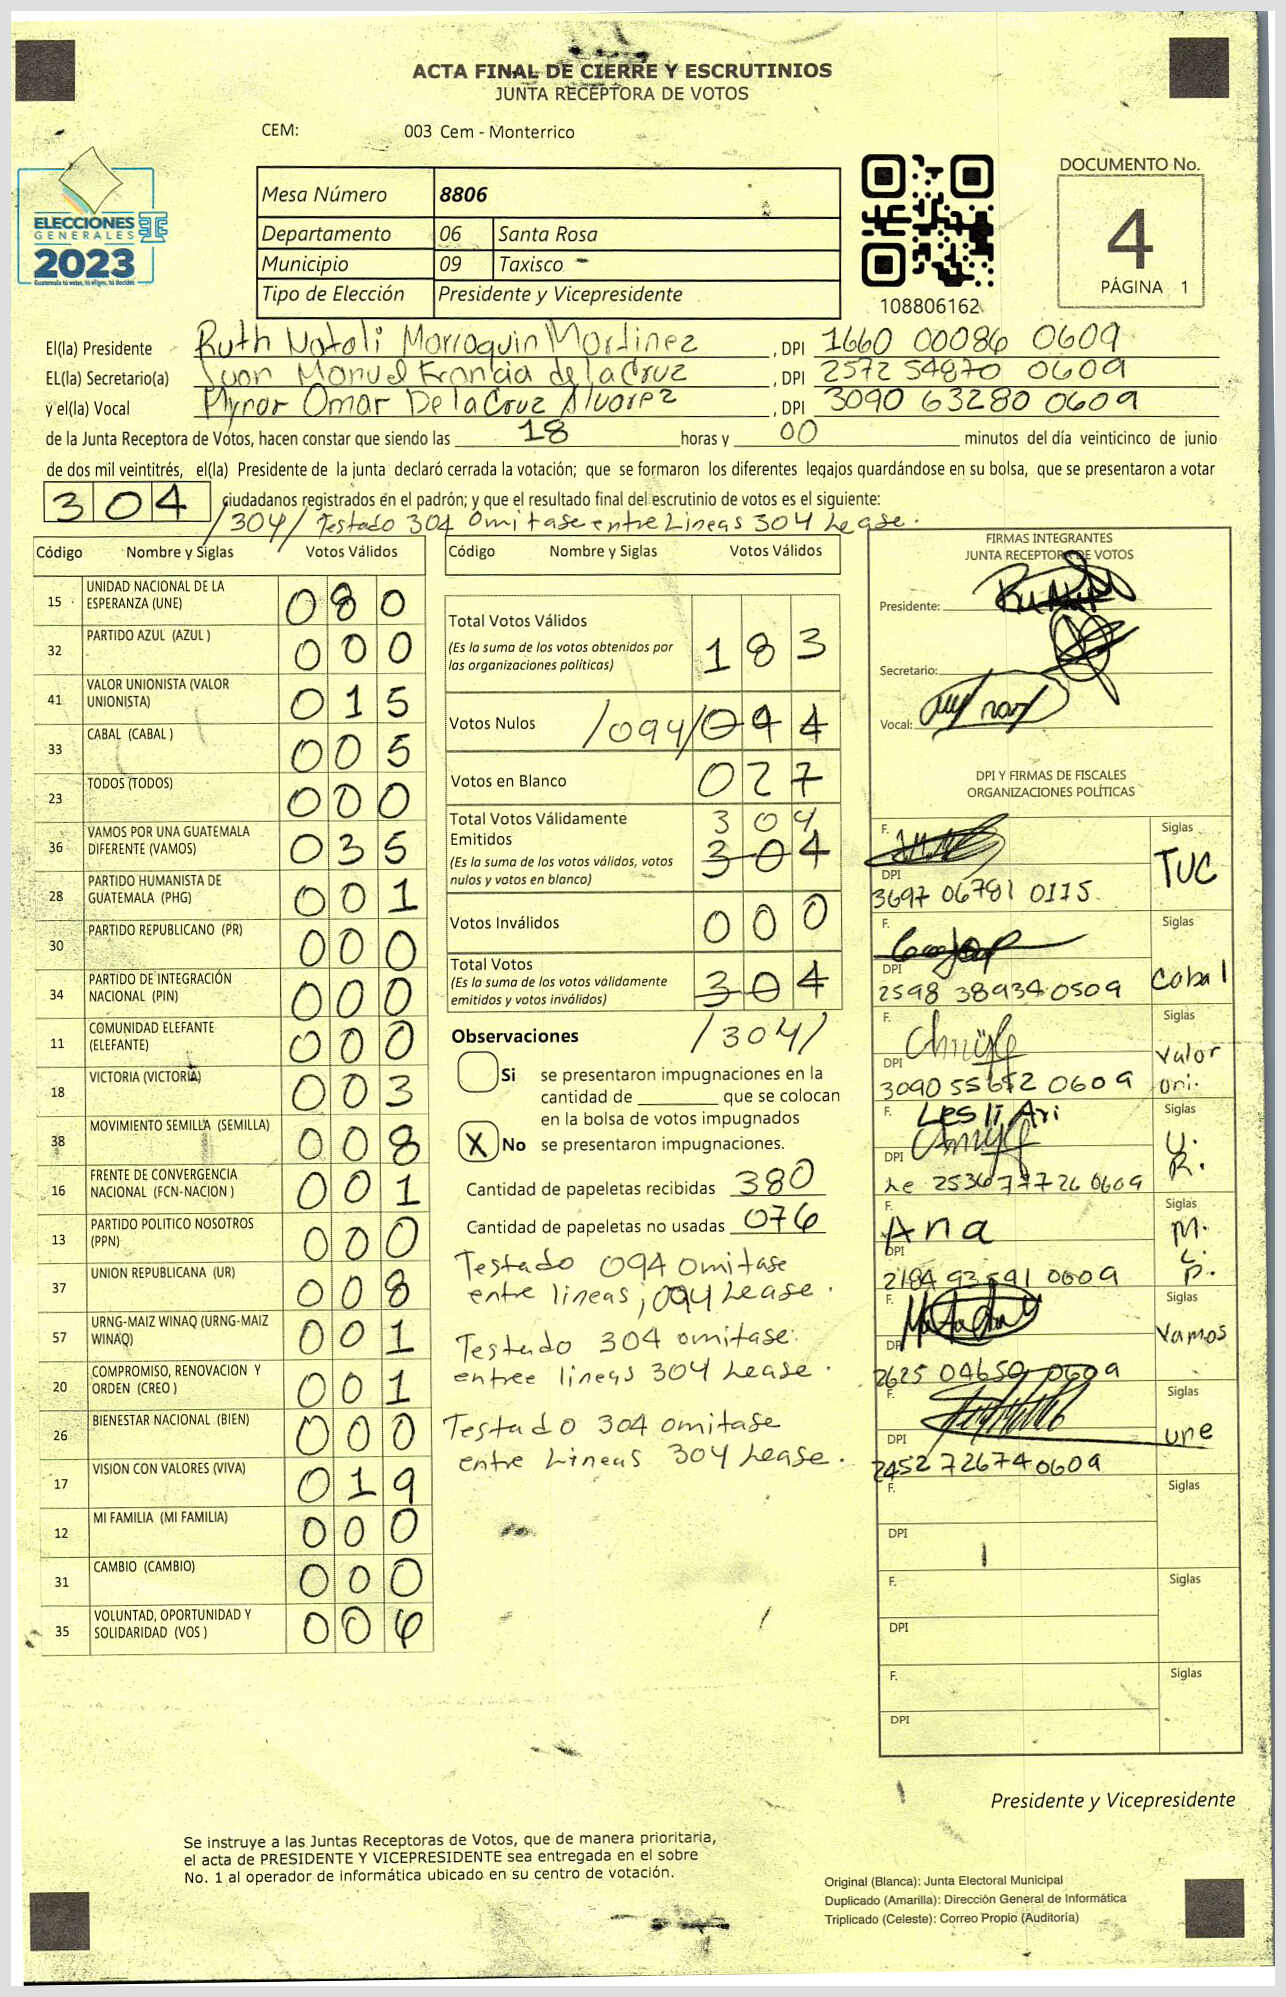 ACTA FINAL DE CIERRE Y ESCRUTINIOS
JUNTA RECEPTORA DE VOTOS
CEM: 003 Cem - Monterrico
ELECCIONES
GENERALES
2023
Guatemala tú votas, tú eliges, tú decides
Mesa Número 8806
Departamento 06 Santa Rosa
Municipio 09 Taxisco
Tipo de Elección Presidente y Vicepresidente
108806162
DOCUMENTO No.
4
PÁGINA 1
El(la) Presidente Ruth Natali Marroquin Martinez, DPI 1660 00086 0609
EL(la) Secretario(a) Juan Manuel Francia de la Cruz, DPI 2572 54870 0609
y el(la) Vocal Mynor Omar De la Cruz Alvarez, DPI 3090 63280 0609
de la Junta Receptora de Votos, hacen constar que siendo las 18 horas y 00 minutos del día veinticinco de junio
de dos mil veintitrés, el(la) Presidente de la junta declaró cerrada la votación; que se formaron los diferentes legajos guardándose en su bolsa, que se presentaron a votar
304 ciudadanos registrados en el padrón; y que el resultado final del escrutinio de votos es el siguiente:
/304/ Testado 304 Omitase entre Lineas 304 Lease.
Código Nombre y Siglas Votos Válidos
15 UNIDAD NACIONAL DE LA ESPERANZA (UNE) 080
32 PARTIDO AZUL (AZUL ) 000
41 VALOR UNIONISTA (VALOR UNIONISTA) 015
33 CABAL (CABAL ) 005
23 TODOS (TODOS) 000
36 VAMOS POR UNA GUATEMALA DIFERENTE (VAMOS) 035
28 PARTIDO HUMANISTA DE GUATEMALA (PHG) 001
30 PARTIDO REPUBLICANO (PR) 000
34 PARTIDO DE INTEGRACIÓN NACIONAL (PIN) 000
11 COMUNIDAD ELEFANTE (ELEFANTE) 000
18 VICTORIA (VICTORIA) 003
38 MOVIMIENTO SEMILLA (SEMILLA) 008
16 FRENTE DE CONVERGENCIA NACIONAL (FCN-NACION ) 001
13 PARTIDO POLITICO NOSOTROS (PPN) 000
37 UNION REPUBLICANA (UR) 008
57 URNG-MAIZ WINAQ (URNG-MAIZ WINAQ) 001
20 COMPROMISO, RENOVACION Y ORDEN (CREO ) 001
26 BIENESTAR NACIONAL (BIEN) 000
17 VISION CON VALORES (VIVA) 019
12 MI FAMILIA (MI FAMILIA) 000
31 CAMBIO (CAMBIO) 000
35 VOLUNTAD, OPORTUNIDAD Y SOLIDARIDAD (VOS ) 006
Código Nombre y Siglas Votos Válidos
Total Votos Válidos 183
(Es la suma de los votos obtenidos por
las organizaciones políticas)
Votos Nulos /094/ 094
Votos en Blanco 027
Total Votos Válidamente 304
Emitidos 304
(Es la suma de los votos válidos, votos
nulos y votos en blanco)
Votos Inválidos 000
Total Votos 304
(Es la suma de los votos válidamente
emitidos y votos inválidos)
Observaciones /304/
Si se presentaron impugnaciones en la
cantidad de ________ que se colocan
en la bolsa de votos impugnados
X No se presentaron impugnaciones.
Cantidad de papeletas recibidas 380
Cantidad de papeletas no usadas 076
Testado 094 Omitase
entre lineas, 094 Lease.
Testado 304 omitase
entree lineas 304 Lease.
Testado 304 omitase
entre Lineas 304 Lease.
FIRMAS INTEGRANTES
JUNTA RECEPTORA DE VOTOS
Presidente:
Secretario:
Vocal:
DPI Y FIRMAS DE FISCALES
ORGANIZACIONES POLÍTICAS
F. Siglas TUC
DPI 3697 06781 0115
F. Siglas Cabal
DPI 2598 38934 0509
F. Siglas Valor uni.
DPI 3090 55652 0609
F. Lesli Ari Siglas U.R.
DPI 2536 77726 0609
F. Ana Siglas M.L.P.
DPI 2184 93591 0609
F. Siglas Vamos
DPI 2625 04650 0609
F. Siglas une
DPI 2452 72674 0609
F. Siglas
DPI
F. Siglas
DPI
F. Siglas
DPI
Presidente y Vicepresidente
Se instruye a las Juntas Receptoras de Votos, que de manera prioritaria,
el acta de PRESIDENTE Y VICEPRESIDENTE sea entregada en el sobre
No. 1 al operador de informática ubicado en su centro de votación.
Original (Blanca): Junta Electoral Municipal
Duplicado (Amarilla): Dirección General de Informática
Triplicado (Celeste): Correo Propio (Auditoría)